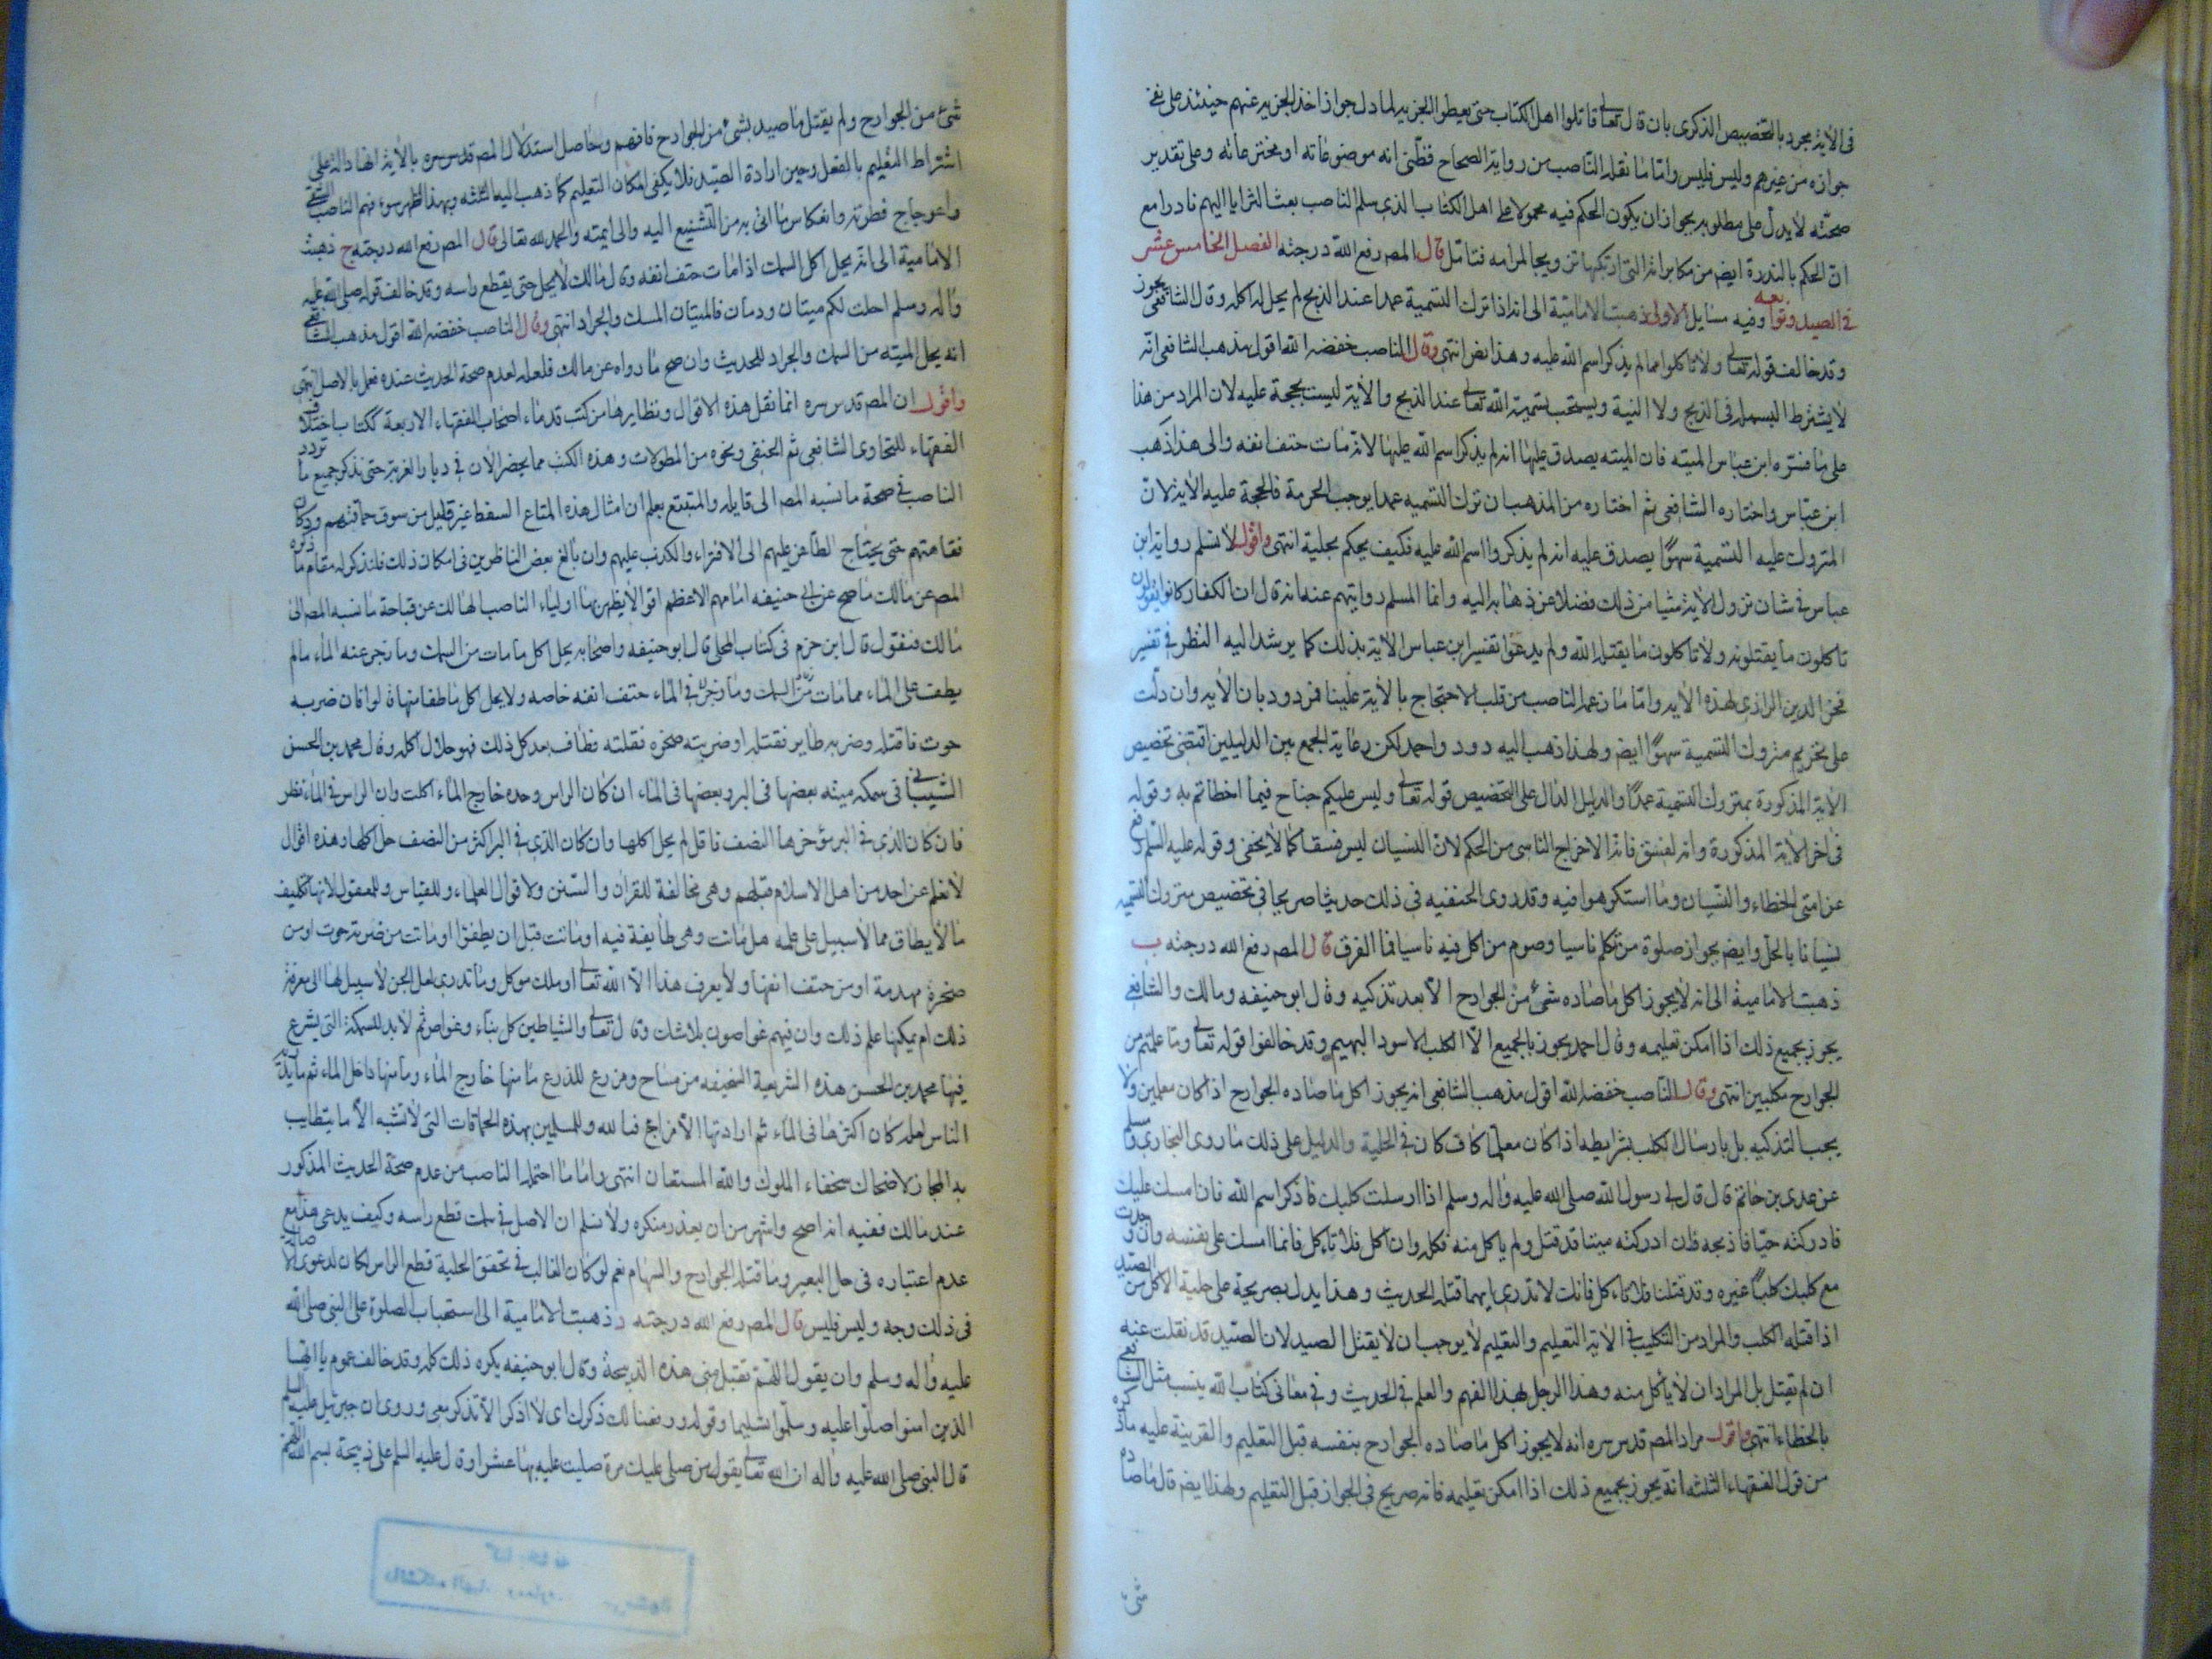 فى الآية مجرد بالتخصيص الذكرى بان قال تعالى قاتلوا اهل الكتاب حتى يعطوا الجزيه لما دل جواز اخذ الجزيه عنهم حينئذ على نفى
جوازه من غيرهم وليس فليس وامّا ما نقله النّاصب من رواية الصحاح فظنّى انه موضوعاته او مخترعاته وعلى تقدير
صحّته لايدلّ على مطلوبه بجواز ان يكون الحكم فيه محمولا على اهل الكتاب الذى سلم الناصب بعث السّرايا اليهم نادرا مع
انّ الحكم بالندرة ايضم من مكابراته التى ارتكبها ترويجا لمرامه فتامّل قال المصر رفع اللّه درجته الفصل الخامس عشر
فى الصيد وتوابعه وفيه مسايل الاولى ذهبت الاماميّة الى انه اذا ترك التسمية عمدا عند الذبح لم يحل له اكله وقال الشافعى يجوز
وقد خالف قوله تعالى ولا تاكلوا مما لم يذكر اسم اللّه عليه وهذا نصّ انتهى وقال الناصب خفضه اللّه اقول مذهب الشافعى انّه
لايشترط البسمله فى الذبح ولا النية ويستحب تسمية اللّه تعالى عند الذبح والآية ليست بحجة عليه لان المراد من هذا
على ما فسّره ابن عبّاس الميته فان الميته يصدق عليها انه لم يذكر اسم اللّه عليها لانّه مات حتف انفه والى هذا ذهب
ابن عبّاس واختاره الشافعى ثم اختاره من المذهب ان ترك التسميه عمدا يوجب الحرمة فالحجة عليه الآية لانّ
المتروك عليه التسمية سهوًا يصدق عليه انه لم يذكروا اسم اللّه عليه فكيف يحكم بحلية انتهى واقول لا نسلم رواية ابن
عباس فى شان نزول الآية شيئا من ذلك فضلا عن ذهابه اليه وانما المسلم روايتهم عنه انه قال ان الكفار كانوا يقولون
تاكلون ما يقتلونه ولا تاكلون ما يقتله اللّه ولم يدعوا تفسير ابن عباس الآية بذلك كما يرشد اليه النظر فى تفسير
فخر الدين الرازى لهذه الآيه وامّا ما زعمه الناصب من قلب الاحتجاج بالآية علينا فمردود بان الآيه وان دلّت
على تحريم متروك التسمية سهوًا ايضم ولهذا ذهب اليه دود واحمد لكن رعاية الجمع بين الدليلين اقتضى تخصيص
الآية المذكورة بمتروك التسمية عمدًا والدليل الدال على التخصيص قوله تعالى وليس عليكم جناح فيما اخطاتم به وقوله
فى اخر الآية المذكورة وانه لفسق فانه الاخراج الناسى من الحكم لانّ النسيان ليس فسقا كما لا يخفى وقوله عليه السّلم رفع
عن امتى الخطاء والنّسيان وما استكرهوا فيه وقد روى الحنفيه فى ذلك حديثا صريحا فى تخصيص متروك التسميه
نسيانا بالحل وايضم بجواز صلوة من تكلم ناسيا وصوم من اكل فيه ناسيا فما الفرق قال المصر رفع اللّه درجته ب
ذهبت الامامية الى انه لايجوز اكل ما صاده شئ من الجوارح الّا بعد تذكيه وقال ابو حنيفه ومالك والشافعى
يجوز بجميع ذلك اذا امكن تعليمه وقال احمد يجوز بالجميع الّا الكلب الاسود البهيم وقد خالفوا قوله تعالى وما علمتم من
الجوارح مكلبين انتهى وقال النّاصب خفضه اللّه اقول مذهب الشافعى انه يجوز اكل ما صاده الجوارح اذا كان معلمين ولا
يجب التذكيه بل بارسال الكلب بشرايطه اذا كان معلّما كاف كان فى الحلية والدليل على ذلك ما روى البخارى ومسلم
عن عدى بن حاتم قال قال لى رسول اللّه صلى اللّه عليه واله وسلم اذا ارسلت كلبك فاذكر اسم اللّه فان امسك عليك
فادركته حيّا فاذبحه فان ادركته ميتا قد قتل ولم ياكل منه فكله وان اكل فلا تاكل فانما امسك على نفسه وان وجدت
مع كلبك كلبًا غيره وقد قتلن فلا تاكل فانك لا تدرى ايهما قتله الحديث وهذا يدل بصريحة على حلية الاكل من الصيد
اذا قتله الكلب والمراد من التكليب فى الآية التعليم والتعليم لايوجب ان لا يقتل الصيد لان الصيد قد نقلت عنه
ان لم يقتل بل المراد ان لا يأكل منه وهذا الرجل بهذا الفهم والعلم فى الحديث وفى معانى كتاب اللّه ينسب مثل الشافعى
بالخطاء انتهى واقول مراد المصر قدس سره انه لايجوز اكل ما صاده الجوارح بنفسه قبل التعليم والقرينة عليه ما ذكره
من قول الفقهاء الثلثه انّه يجوز بجميع ذلك اذا امكن تعليمه فانه صريح فى الجواز قبل التعليم ولهذا ايضم قال ما صاده
شئ من الجوارح ولم يقتل ما صيد بشئ من الجوارح فافهم وحاصل استدلال المصر قدس سره بالآية انها دالة على
اشتراط التعليم بالفعل وحين ارادة الصيد فلا يكفى امكان التعليم كما ذهب اليه الثلثه وبهذا ظهر سوء فهم الناصب الشقى
واعوجاج فطرته وانعكاس ما اتى به من التشنيع اليه والى ايمته والحمد للّه تعالى قال المصر رفع اللّه درجته ج ذهبت
الامامية الى انه يحل اكل السمك اذا مات حتف انفه وقال مالك لايحل حتى يقطع راسه وقد خالف قوله صلى اللّه عليه
واله وسلم احلت لكم ميتان ودمان فالميتان السمك والجراد انتهى وقال الناصب خفضه اللّه اقول مذهب الشافعى
انه يحل الميته من السمك والجراد للحديث وان صح ما رواه عن مالك فلعله لعدم صحة الحديث عنده فعمل بالاصل انتهى
واقول ان المصر قدس سره انما نقل هذه الاقوال ونظايرها من كتب قدماء اصحاب الفقهاء الاربعة ككتاب اختلاف
الفقهاء للطحاوى الشافعى ثم الحنفى ونحوه من المطولات وهذه الكتب مما يحضر الان فى ديار الغربة حتى نذكر جميع ما تردد
الناصب فى صحة ما نسبه المصر الى قايله والمتتبع يعلم ان امثال هذه المتاع السقط غير قليل من سوق حماقتهم ودكان
فقاهتهم حتى يحتاج الطاعن عليهم الى الافتراء والكذب عليهم وان بالغ بعض الناظرين فى امكان ذلك فلنذكر له مقام ما ذكره
المصر عن مالك ما صح عن ابى حنيفه امامهم الاعظم اقوالا يظهر بها اولياء الناصب الهالك عن قباحة ما نسبه المصر الى
مالك فنقول قال ابن حزم فى كتاب المحلى قال ابو حنيفه واصحابه يحل اكل ما مات من السمك وما زجر عنه الماء مالم
يطف على الماء مما مات من السمك وما زجر فى الماء حتف انفه خاصه ولا يحل اكل ما طفا منها قالوا فان ضربه
حوت فاقتله وضربه طاير فقتله او ضربته صخره فقتلته فطاف بعد كل ذلك فهو حلال اكله وقال محمد بن الحسن
الشيبانى فى سمكه ميته بعضها فى البر وبعضها فى الماء ان كان الراس وحده خارج الماء اكلت وان الراس فى الماء نظر
فان كان الذى فى البر مؤخرها النصف فاقل لم يحل اكلها وان كان الذى فى البر اكثر من النصف حل اكلها وهذه اقوال
لا نعلم عن احد من اهل الاسلام قبلهم وهى مخالفة للقران والسّنن ولاقوال العلماء وللقياس وللمعقول لانها تكليف
مالا يطاق مما لا سبيل على علمه هل ماتت وهى طايفة فيه او ماتت قبل ان يطفوا او ماتت من ضربة حوت او من
صخرة مهدمة او من حتف انفها ولا يعرف هذا الّا اللّه تعالى او ملك موكل وما تدرى لعل الجن لا سبيل لها الى معرفة
ذلك ام يمكنها علم ذلك وان فيهم غواصون بلا شك وقال تعالى والشياطين كل بناء وغواص ثم لابد للسمكة التى يشرع
فيها محمد بن الحسن هذه الشريعة السخيفه من مساح ومن رع للذرع ما منها خارج الماء وما منها داخل الماء ثم ما
الناس لعله كان اكثرها فى الماء ثم ارادتها الامزاج فيا للّه وللمسلمين بهذه الحماقات التى لا تشبه الا ما يتطايب
به المجاز لاضحاك سخفاء الملوك واللّه المستعان انتهى واما ما احتمله الناصب من عدم صحة الحديث المذكور
عند مالك ففيه انه اصح واشهر من ان يعذر منكره ولا نسلم ان الاصل فى سمك قطع راسه وكيف يدعى هذا مع
عدم اعتباره فى حل البعير وما قتله الجوارح والسهام نعم لو كان الغالب فى تحقق الحلية قطع الراس لكان لدعوى الاصالة
فى ذلك وجه وليس فليس قال المصر رفع اللّه درجته د ذهبت الامامية الى استحباب الصلوة على النبى صلى اللّه
عليه واله وسلم وان يقول اللّهمّ تقبل منى هذه الذبيحة وقال ابو حنيفه يكره ذلك كله وقد خالف عموم يا ايها
الذين امنوا صلّوا عليه وسلّموا تسليما وقوله ورفعنا لك ذكرك اى لا اذكر الا تذكر معى وروى ان جبرئيل عليه السلم
قال للنبى صلى اللّه عليه واله ان اللّه تعالى يقول من صلى عليك مرة صليت عليه بها عشرا وقال عليه السلم على ذبيحة بسم اللّه اللّهمّ